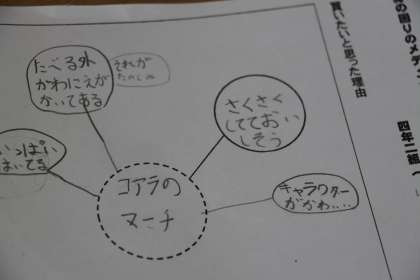 買いたいと思った理由
四年二組
たべる外
がわにえが
かいてある
それが
たのしみ
さくさく
してておい
しそう
コアラの
マーチ
キャラクター
がかわ....
いっぱい
はいてる